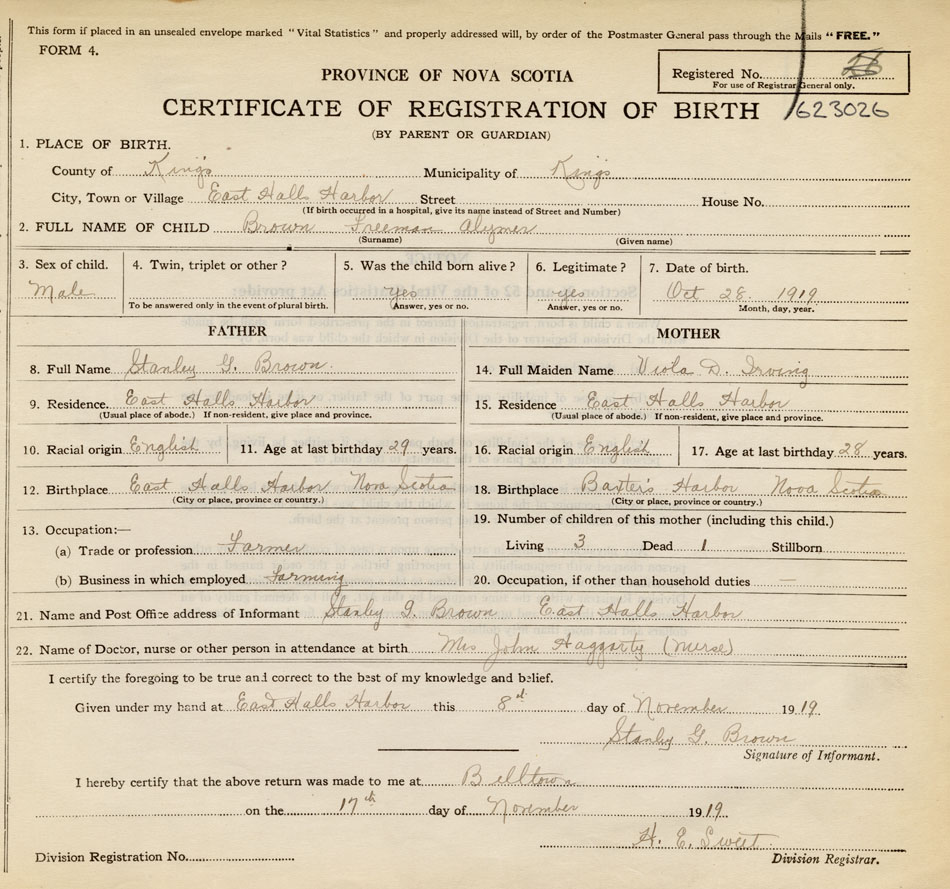 This form if placed in an unsealed envelope marked "Vital Statistics" and properly addressed will, by order of the Postmaster General pass through the Mails "FREE."
FORM 4.
Registered No. 26
For use of Registrar General only.
PROVINCE OF NOVA SCOTIA
CERTIFICATE OF REGISTRATION OF BIRTH 623026
(BY PARENT OR GUARDIAN)
1. PLACE OF BIRTH.
County of King's Municipality of King's
City, Town or Village East Halls Harbor Street House No.
(If birth occurred in a hospital, give its name instead of Street and Number)
2. FULL NAME OF CHILD Brown Freeman Alymer
(Surname) (Given name)
3. Sex of child. Male
4. Twin, triplet or other?
To be answered only in the event of plural birth.
5. Was the child born alive? yes
Answer, yes or no.
6. Legitimate? yes
Answer, yes or no.
7. Date of birth. Oct 28 1919
Month, day, year.
FATHER
8. Full Name Stanley G. Brown
9. Residence East Halls Harbor
(Usual place of abode.) If non-resident, give place and province.
10. Racial origin English 11. Age at last birthday 29 years.
12. Birthplace East Halls Harbor Nova Scotia
(City or place, province or country.)
13. Occupation:—
(a) Trade or profession Farmer
(b) Business in which employed Farming
MOTHER
14. Full Maiden Name Viola D. Irving
15. Residence East Halls Harbor
(Usual place of abode.) If non-resident, give place and province.
16. Racial origin English 17. Age at last birthday 28 years.
18. Birthplace Baxter's Harbor Nova Scotia
(City or place, province or country.)
19. Number of children of this mother (including this child.)
Living 3 Dead 1 Stillborn
20. Occupation, if other than household duties —
21. Name and Post Office address of Informant Stanley G. Brown East Halls Harbor
22. Name of Doctor, nurse or other person in attendance at birth Mrs John Haggarty (nurse)
I certify the foregoing to be true and correct to the best of my knowledge and belief.
Given under my hand at East Halls Harbor this 8th day of November 1919
Stanley G. Brown
Signature of Informant.
I hereby certify that the above return was made to me at Billtown
on the 17th day of November 1919
H. E. Sweet
Division Registration No. Division Registrar.